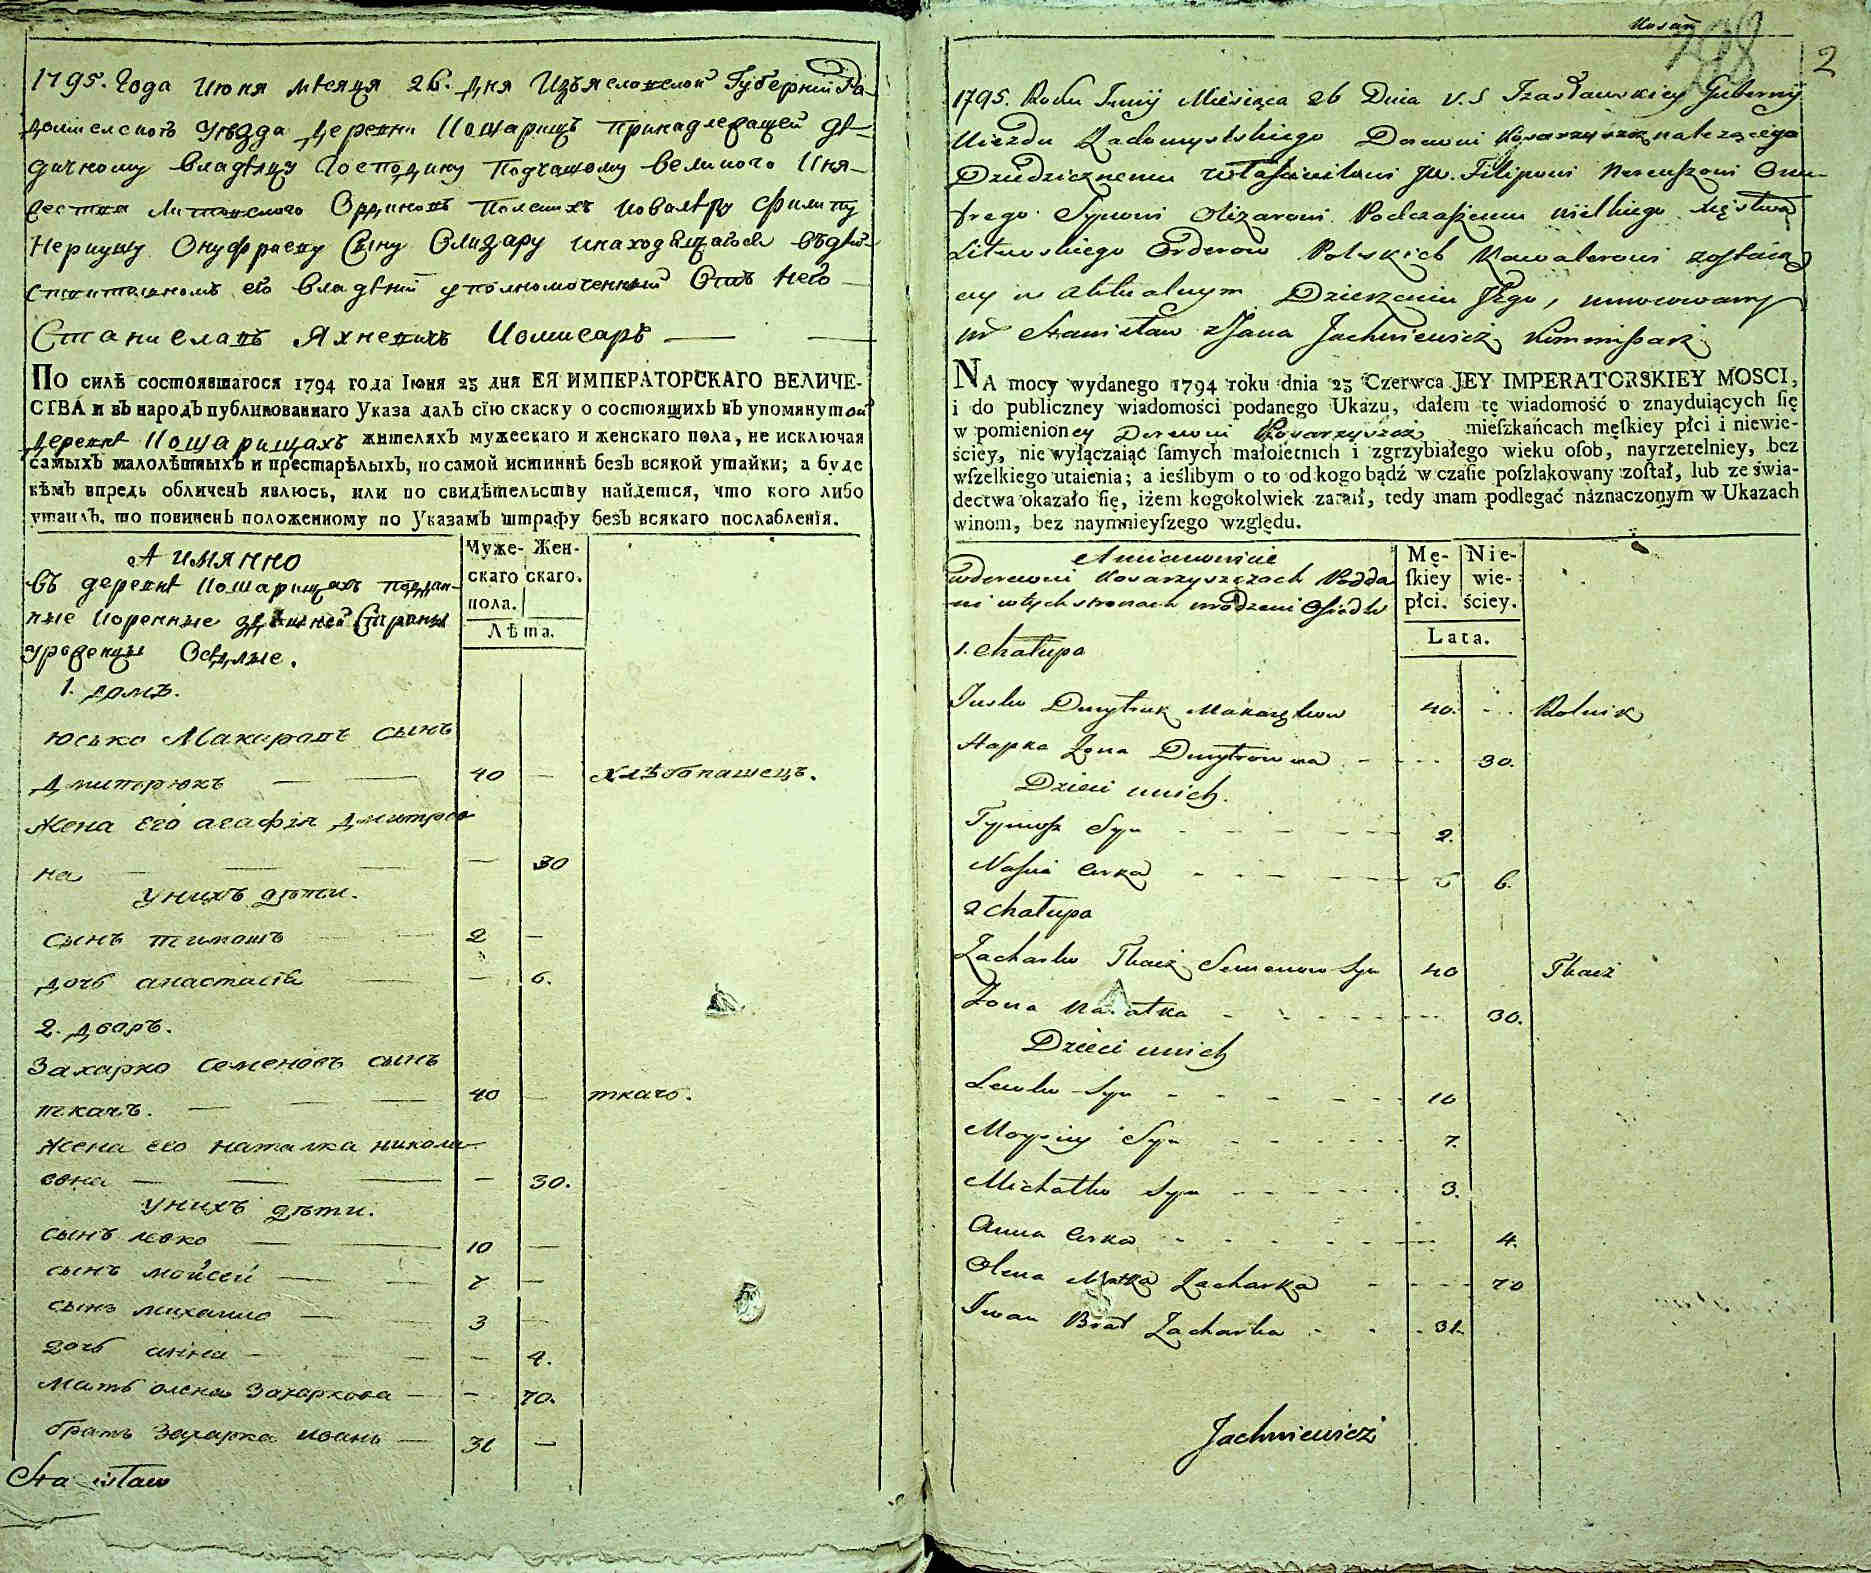 1795. Года Июня месяца 26. дня Изъяславской Губернии Ра-
домысльского уезда деревни Кошарищъ принадлежащей де-
дичному владелцу Господину Подчашему великого Кня-
жества Литовского Ординовъ Полскихъ Ковалеру Филипу
Нериушу Онуфриеву Сыну Олизару инаходящагося въдей-
ствительномъ его владении уполномоченный Отъ Него
Станиславъ Яхневичъ Комисаръ
ПО силѣ состоявшагося 1794 года Іюня 23 дня ЕЯ ИМПЕРАТОРСКАГО ВЕЛИЧЕ-
СТВА и въ народъ публикованнаго Указа далъ сію скаску о состоящихъ въ упомянутой
деревнѣ Кошарищахъ жителяхъ мужескаго и женскаго пола, не исключая
самыхъ малолѣтныхъ и престарѣлыхъ, по самой истиннѣ безъ всякой утайки; а буде
кѣмъ впредь обличенъ явлюсь, или по свидѣтельству найдется, что кого либо
утаилъ, то повиненъ положенному по Указамъ штрафу безъ всякаго послабленія.
А имянно
въ деревнѣ Кошарищахъ поддан-
ные коренные здешней Стороны
уроженцы Оседлые.
Муже- Жен-
скаго скаго.
пола.
Лѣта.
1. домъ.
Юсько Макаровъ сынъ
Дмитрюкъ — 40 — хлѣбопашецъ.
Жена его агафія дмитров
на — — 30
Унихъ дѣти.
сынъ тимошъ 2 —
дочь анастасія — 6.
2. дворъ.
Захарко Семеновъ сынъ
ткачъ. — 40 — ткачъ.
жена его наталка никола
евна — — 30.
Унихъ дѣти.
сынъ левко — 10 —
сынъ мойсей — 7 —
сынъ михайло — 3 —
дочь анна — — 4.
Мать олена Захаркова — — 70.
братъ захарка иванъ — 31 —
Stanisław
198
2
1795. Roku Junij Miesiąca 26 Dnia V.S Izasławskiey Gubernij
Uiezdu Radomyslskiego Derewni Koszarzyszcz należącego
Dziedzicznemu własicielowi JW. Filipowi Nereuszowi Onu-
frego Synowi Olizarowi Podczaszemu wielkiego Xięstwa
Litewskiego Orderow Polskich Kawalerowi zostaią
cy w aktualnym Dzierżeniu Jego, umocowany
Stanisław z Jana Jachniewicz Kommissarz
NA mocy wydanego 1794 roku dnia 23 Czerwca JEY IMPERATORSKIEY MOSCI,
i do publiczney wiadomości podanego Ukazu, dałem tę wiadomość o znayduiących ſię
w pomienioney Derewni Koszarzyszcz mieſzkańcach męſkiey płci i niewie-
ściey, nie wyłączaiąć ſamych małoletnich i zgrzybiałego wieku oſob, nayrzetelniey, bez
wſzelkiego utaienia; a ieślibym o to od kogo bądź w czaſie poſzlakowany zoſtał, lub ze świa-
dectwa okazało ſię, iżem kogokolwiek zataił, tedy mam podlegać náznaczonym w Ukazach
winom, bez naymnieyſzego względu.
Amianowicie
wderewni Koszarzyszczach Podda
ni wtych stronach urodzeni Osiedli
Mę- Nie-
ſkiey wie-
płci. ściey.
Lata.
1. Chałupa
Jusko Dmytruk Makarykow 40. Rolnik
Hapka Żona Dmytrowna 30.
Dzieci unich.
Tymosz Syn 2.
Nascia Curka 6.
2 Chałupa
Zacharko Tkacz Semenow Syn 40 Tkacz
Żona Natałka 30.
Dzieci unich
Lewko Syn 10
Moysiey Syn 7.
Michałko Syn 3.
Anna Curka 4.
Olena Matka Zacharka 70
Iwan Brat Zacharka 31.
Jachniewicz